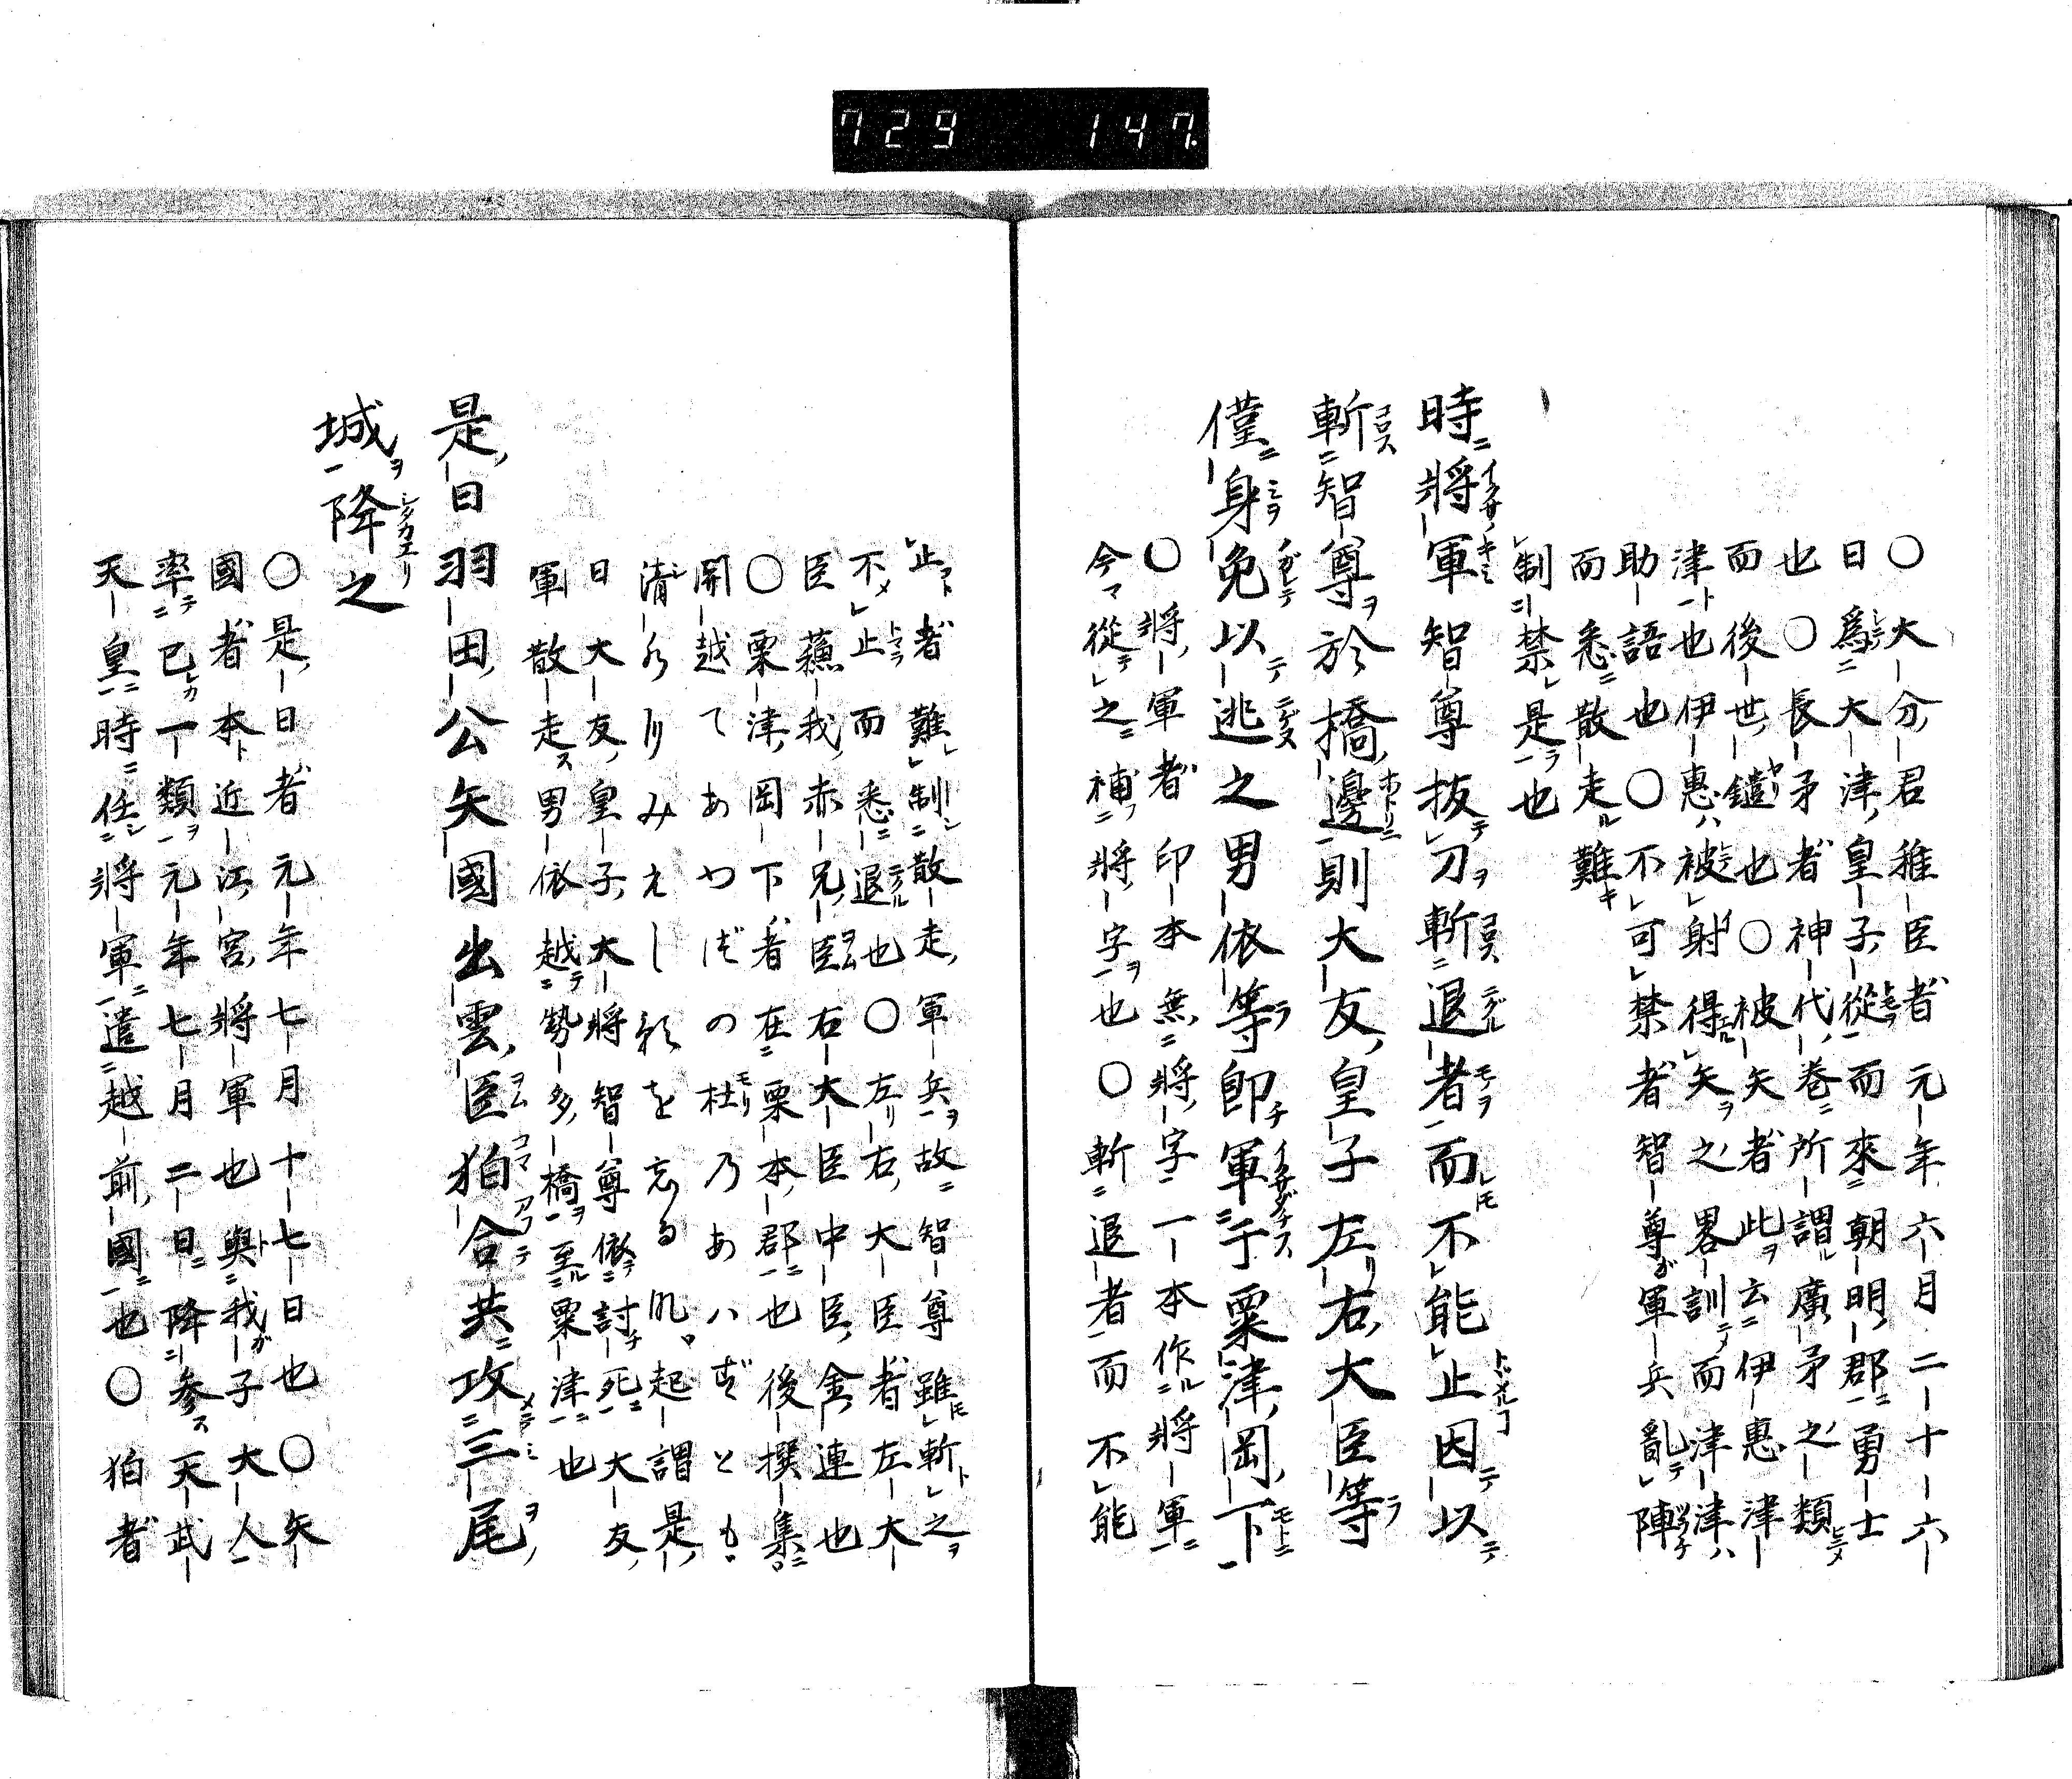 729 147
○大分君稚臣者元年六月二十六
日爲大津皇子從而來朝明郡勇士
也○長矛者神代卷所謂廣矛之類
而後世鑓也○被矢者此云伊惠津
津也伊惠被射得矢之畧訓而津津ハ
助語也○不可禁者智尊軍兵亂陣
而悉散走難
制禁是也
時將軍智尊抜刀斬退者而不能止因以
斬智尊於橋邊則大友皇子左右大臣等
僅身免以逃之男依等卽軍于粟津岡下
○將軍者印本無將字一本作將軍
今從之補將字也○斬退者而不能
止者難制散走軍兵故智尊雖斬之
不止而悉退也○左右大臣者左大
臣蘓我赤兄臣右大臣中臣金連也
○粟津岡下者在粟本郡也後撰集
開越てあわづの杜乃あハずとも
清水りみえし影を忘る肌起謂是
日大友皇子大將智尊依討死大友
軍散走男依越勢多橋至粟津也
是日羽田公矢國出雲臣狛合共攻三尾
城降之
○是日者元年七月十七日也○矢
國者本近江宮將軍也與我子大人
率己一類元年七月二日降参天武
天皇時任將軍遣越前國也○狛者